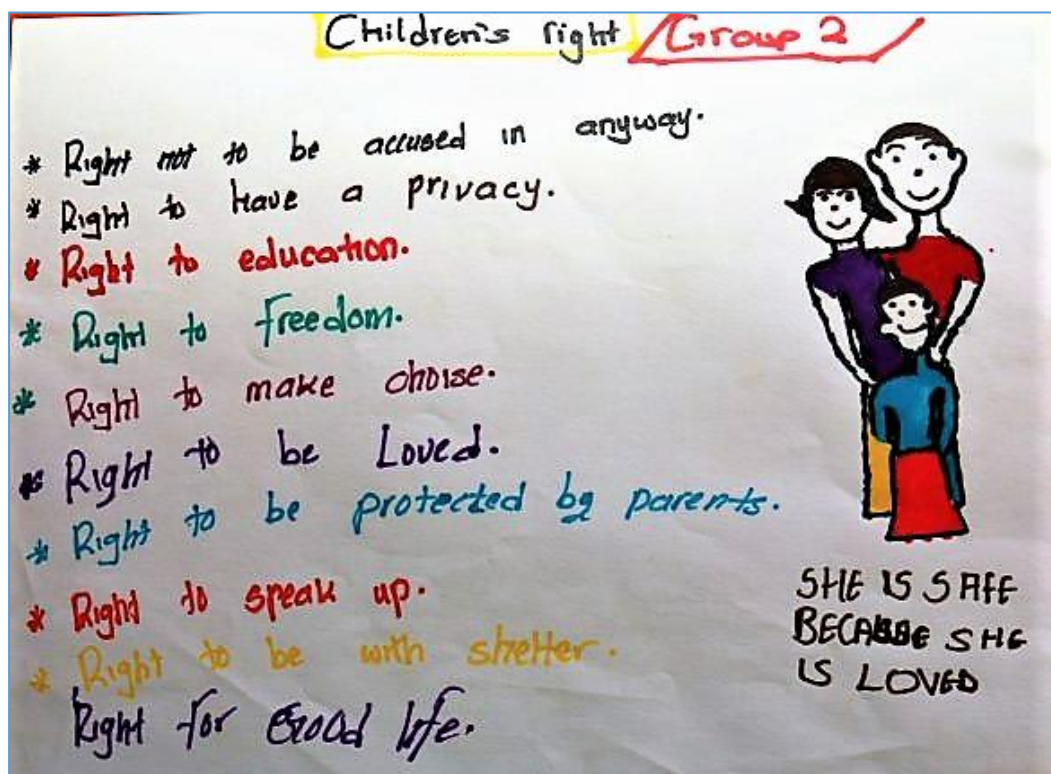 Children's right Group 2
* Right not to be accused in anyway.
* Right to have a privacy.
* Right to education.
* Right to freedom.
* Right to make choise.
* Right to be Loved.
* Right to be protected by parents.
* Right to speak up.
* Right to be with shelter.
Right for Good life.
SHE IS SAFE
BECAUSE SHE
IS LOVED